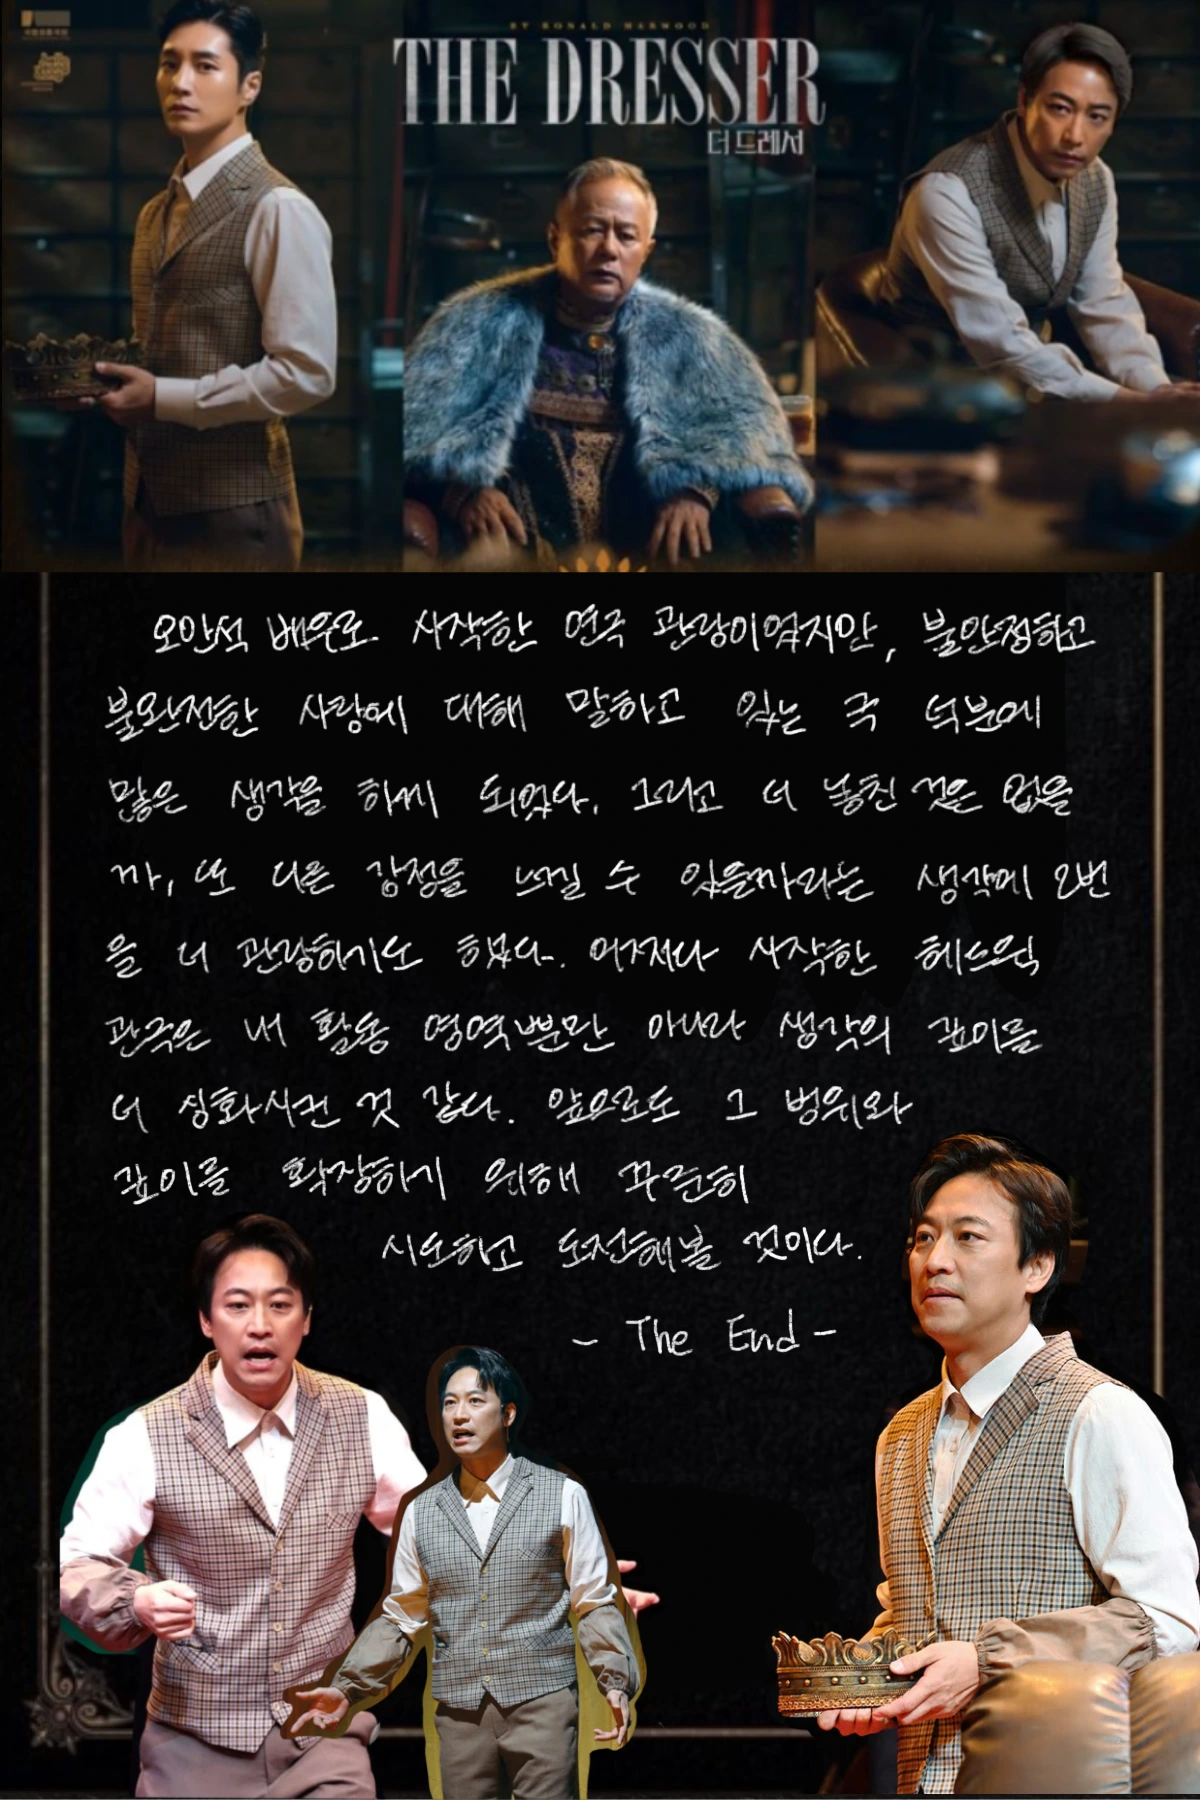 BY RONALD HARWOOD
THE DRESSER
더 드레서
오만석 배우로 시작한 연극 관람이었지만, 불안정하고
불완전한 사랑에 대해 말하고 있는 극 덕분에
많은 생각을 하게 되었다. 그리고 더 놓친 것은 없을
까, 또 다른 감정을 느낄 수 있을까라는 생각에 2번
을 더 관람하기도 했다. 어쩌다 시작한
관극은 내 활동 영역뿐만 아니라 생각의 깊이를
더 심화시킨 것 같다. 앞으로도 그 범위와
깊이를 확장하기 위해 꾸준히
시도하고 도전해볼 것이다.
- The End -